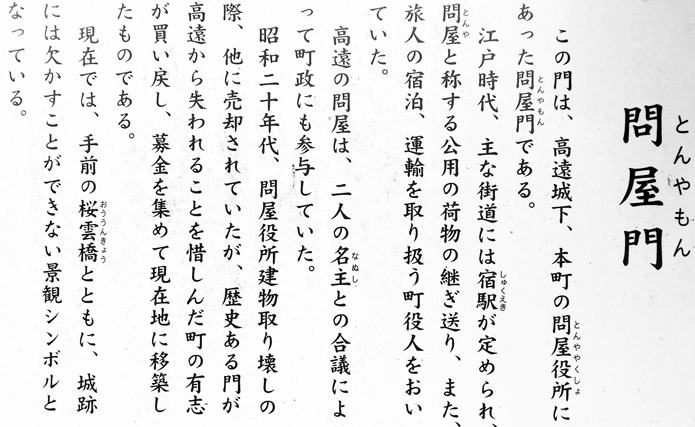 問屋門
とんやもん
この門は、高遠城下、本町の問屋役所に
とんややくしょ
あった問屋門である。
とんやもん
江戸時代、主な街道には宿駅が定められ、
しゅくえき
問屋と称する公用の荷物の継ぎ送り、また、
とんや
旅人の宿泊、運輸を取り扱う町役人をおい
ていた。
高遠の問屋は、二人の名主との合議によ
なぬし
って町政にも参与していた。
昭和二十年代、問屋役所建物取り壊しの
際、他に売却されていたが、歴史ある門が
高遠から失われることを惜しんだ町の有志
が買い戻し、募金を集めて現在地に移築し
たものである。
現在では、手前の桜雲橋とともに、城跡
おううんきょう
には欠かすことができない景観シンボルと
なっている。